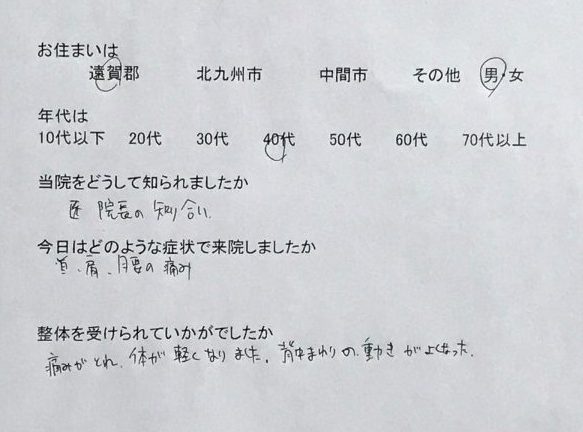 お住まいは
遠賀郡 北九州市 中間市 その他 男・女
年代は
10代以下 20代 30代 40代 50代 60代 70代以上
当院をどうして知られましたか
院長の知り合い
今日はどのような症状で来院しましたか
首、肩、腰の痛み
整体を受けられていかがでしたか
痛みがとれ、体が軽くなりました。背中まわりの動きがよくなった。